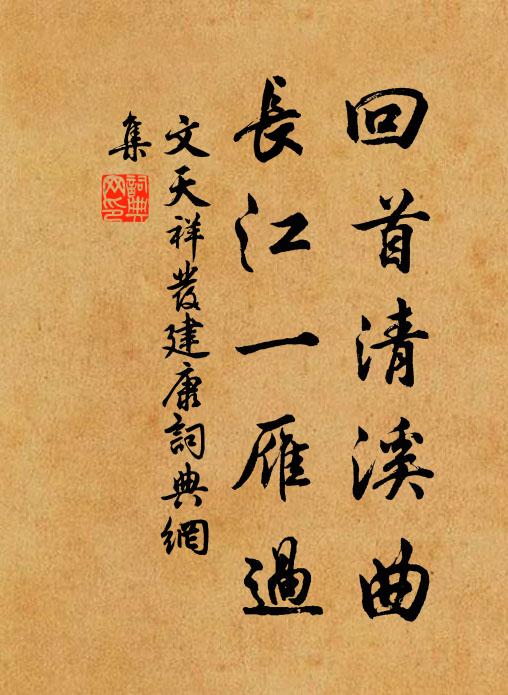 回首清溪曲
長江一雁過
文天祥發建康詞典網
集
詞典
网印